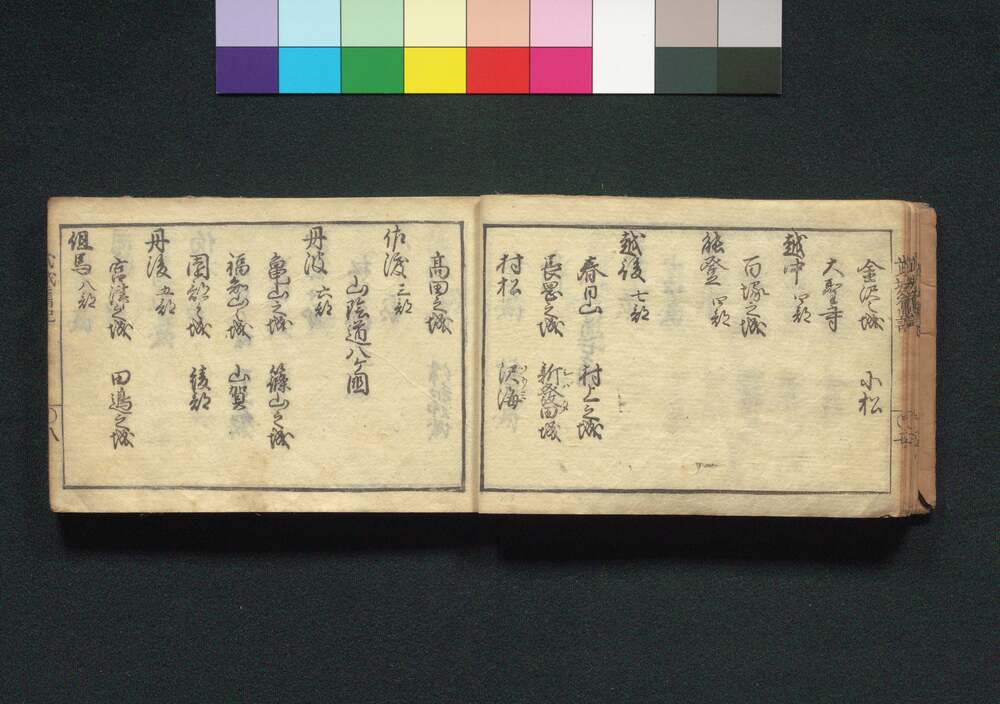 金沢之城 小松
大聖寺
越中 四郡
百塚之城
能登 四郡
越後 七郡
春日山 村上之城
長岡之城 新發田城
村松 沢海
高田之城
佐渡 三郡
山陰道八ケ國
丹波 六郡
亀山之城 篠山之城
福知山之城 山賀
園部之城 綾部
丹後 五郡
宮津之城 田邊之城
但馬 八郡